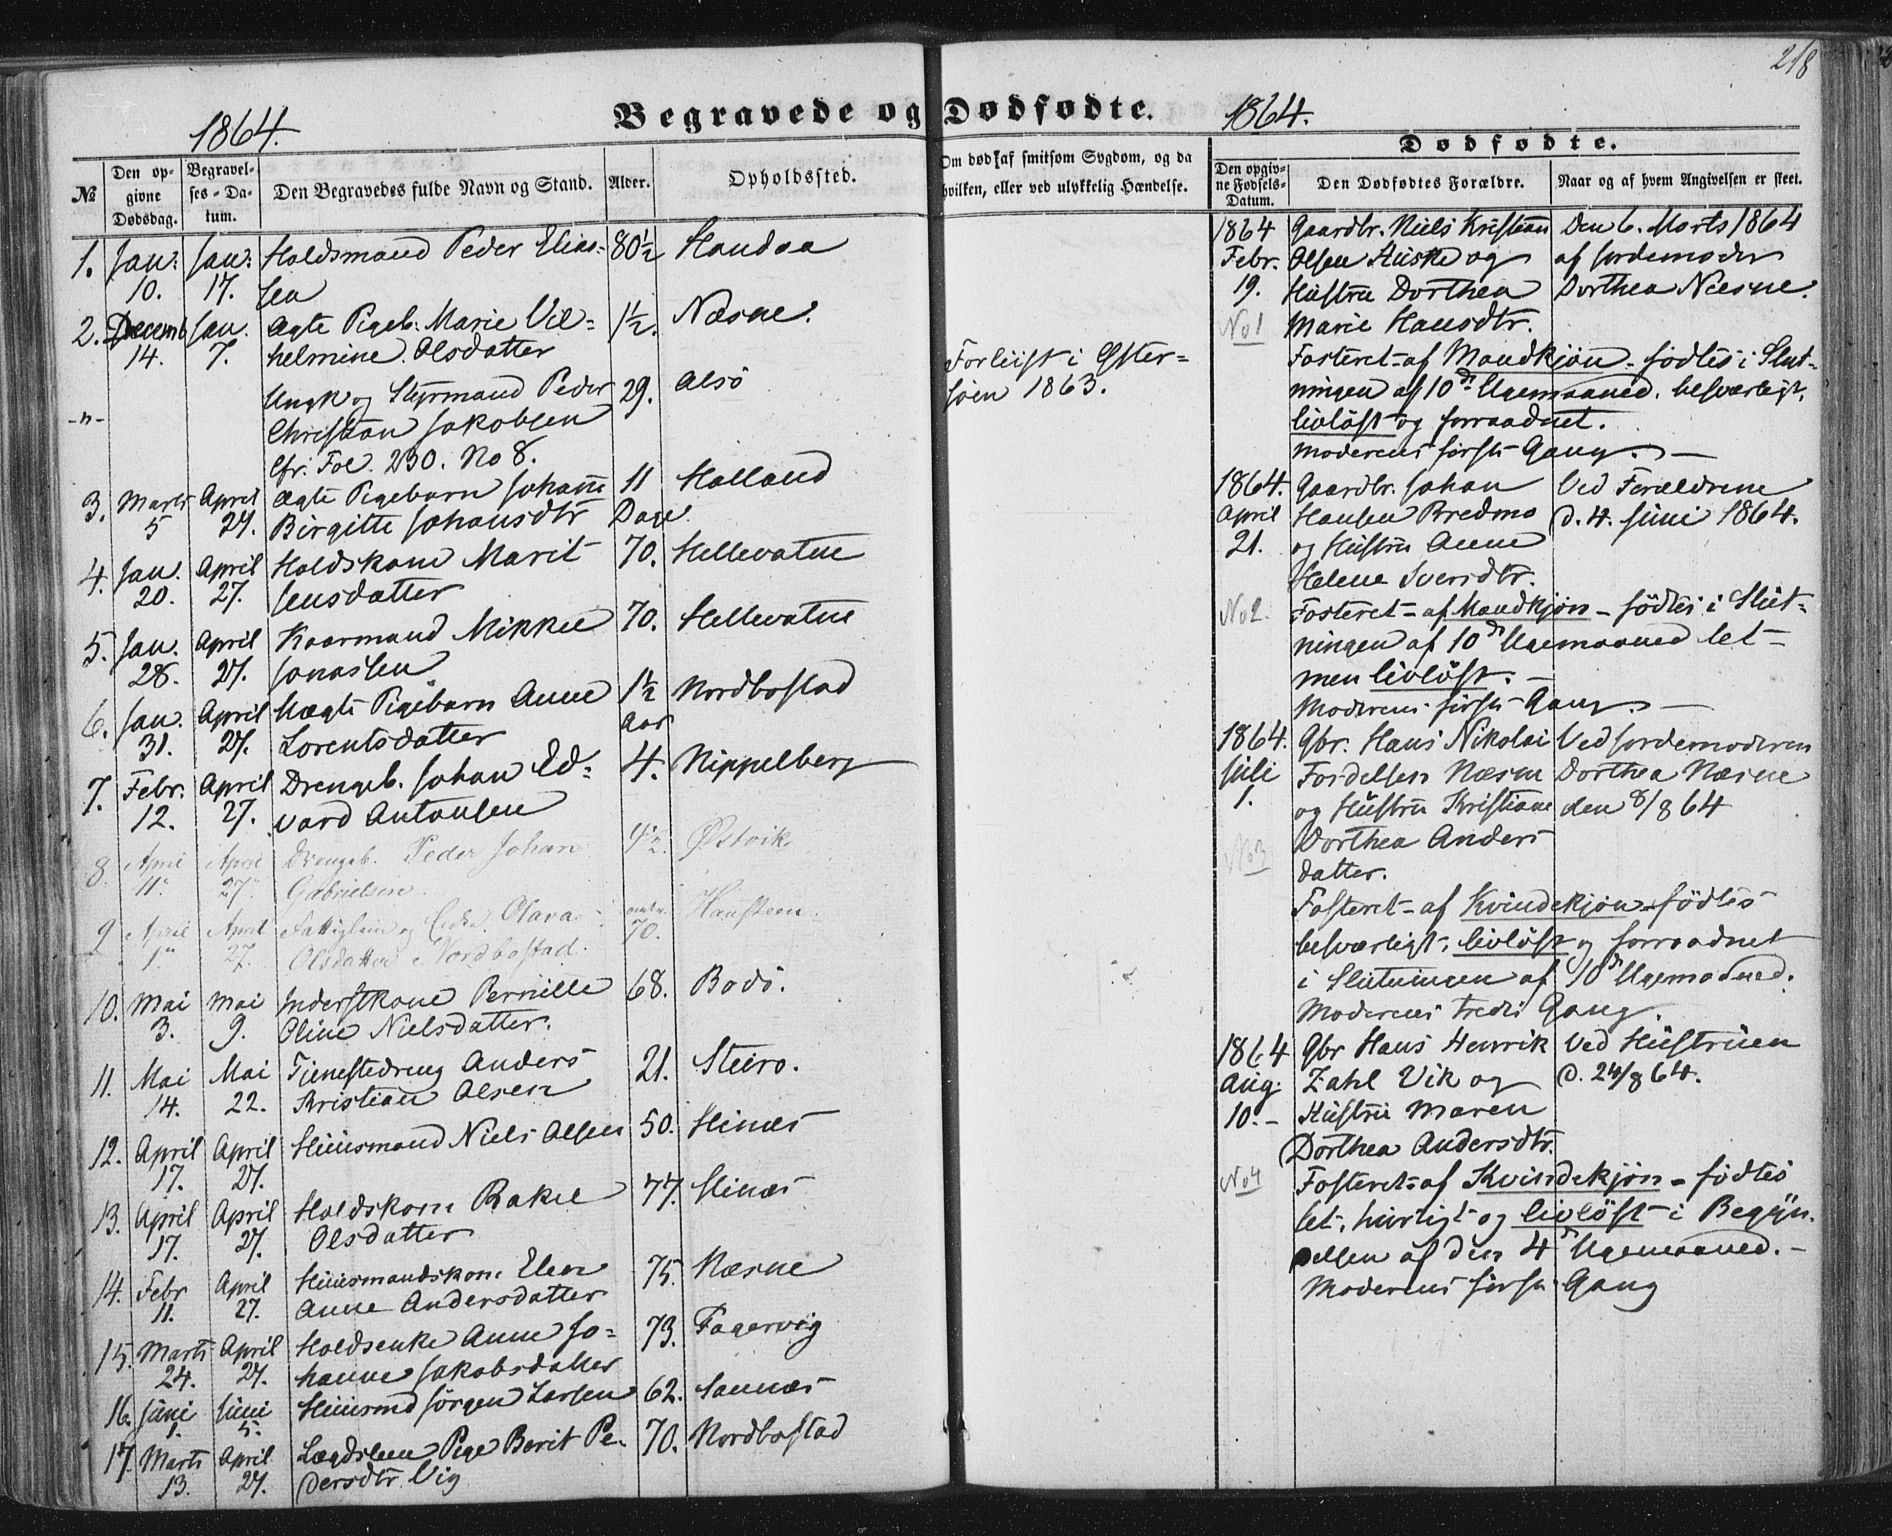 218
1864.
Begravede og Dødfødte.
1864.
№
Den opgivne Dødsdag.
Begravelses-Datum.
Den Begravedes fulde Navn og Stand.
Alder.
Opholdssted.
Om død af smitsom Sygdom, og da hvilken, eller ved ulykkelig Hændelse.
Dødfødte.
Den opgivne Fødsels-Datum.
Den Dødfødtes Forældre.
Naar og af hvem Angivelsen er skeet.
1. Jan: 10. Jan: 17. Holdsmand Peder Elias-
sen 80½ Handaa
2. Decemb 14. Jan. 7. Ægte Pigeb. Marie Vil=
helmine Olsdatter 1½. Næsne.
-"- Ungk og Styrmand Peder
Christian Jakobsen 29. Alsö
cfr. Fol. 230. No 8.
Forliist i Øster=
söen 1863.
3. Marts 5 April 27. Ægte Pigebarn Johanne
Birgitte Johansdtr 11 Dage Halland
4. Jan. 20. April 27. Holdskone Marit
Jensdatter 70. Hellevatne
5. Jan. 28. April 27. Kaarmand Mikkel
Jonassen 70. Hellevatne
6. Jan. 31. April 27. Uægte Pigebarn Anne
Lorentsdatter 1½ Aar Nordbostad
7. Febr. 12. April 27. Drengeb. Johan Ed=
vard Antonsen 4. Nippelberg
8. April 11. April 27. Drengeb. Peder Johan
Gabrielsen. 4½. Østvik.
9 April 1. April 27. Fattiglem og Olava
Olsdatter Nordbostad. 70. Hansteen.
10. Mai 3. Mai 9. Inderstkone Pernille
Oline Nielsdatter. 68. Bodö.
11. Mai 14. Mai 22. Tjenestedreng Anders
Kristian Olsen 21. Steiro.
12. April 17. April 27. Huusmand Niels Olsen 50. Hinæs
13. April 17. April 27. Holdskone Rakel
Olsdatter 77. Hinæs
14. Febr 11. April 27. Huusmandskone Elen
Anne Andersdatter 75. Næsne
15. Marts 24. April 27. Holdsenke Anne Jo=
hanne Jakobsdatter 73. Fagervig
16. Juni 1. Juni 5. Huusmd Jörgen Larsen 62. Sannæs
17. Marts 13. April 27. Lægdslem Pige Berit Pe-
dersdtr Vig 70. Nordbostad
1864 Febr. 19. No 1
Gaardbr. Niels Kristian
Olsen Huske og
Hustru Dorthea
Marie Hansdtr.
Den 6. Marts 1864
af Jordemoder
Dorthea Næsne.
Fosteret - af Mandkjøn - födtes i Slut-
ningen af 10de Ugemaaned, besværligt,
livlöst og forraadnet.
Moderens förste Gang. -
1864. April 21. No 2.
Gaardbr. Johan
Hansen Bredmo
og Hustru Anne
Helene Iversdtr.
Ved Forældrene
d. 4. Juni 1864.
Fosteret - af Mandkjøn - födtes i Slut-
ningen af 10de Ugemaaned let-
men livlöst. -
Moderens förste Gang. -
1864. Juli 1. No 3
Gbr. Hans Nikolai
Fordelsen Næsne
og Hustru Kristiane
Dorthea Anders
datter.
Ved Jordemoderen
Dorthea Næsne
den 8/8 64
Fosteret - af Kvindekjøn - födtes
besværligt, livlöst og forraadnet
i Slutningen af 10de Ugemaaned.
Moderens tredie Gang.
1864 Aug. 10. - No 4
Gbr Hans Henrik
Zahl Vik og
Hustru Maren
Dorthea Andersdtr.
Ved Hustruen
d. 24/8 64.
Fosteret - af Kvindekjøn - födtes
let, hurtigt og livlöst i Begyn-
delsen af den 4de Ugemaaned. -
Moderens förste Gang